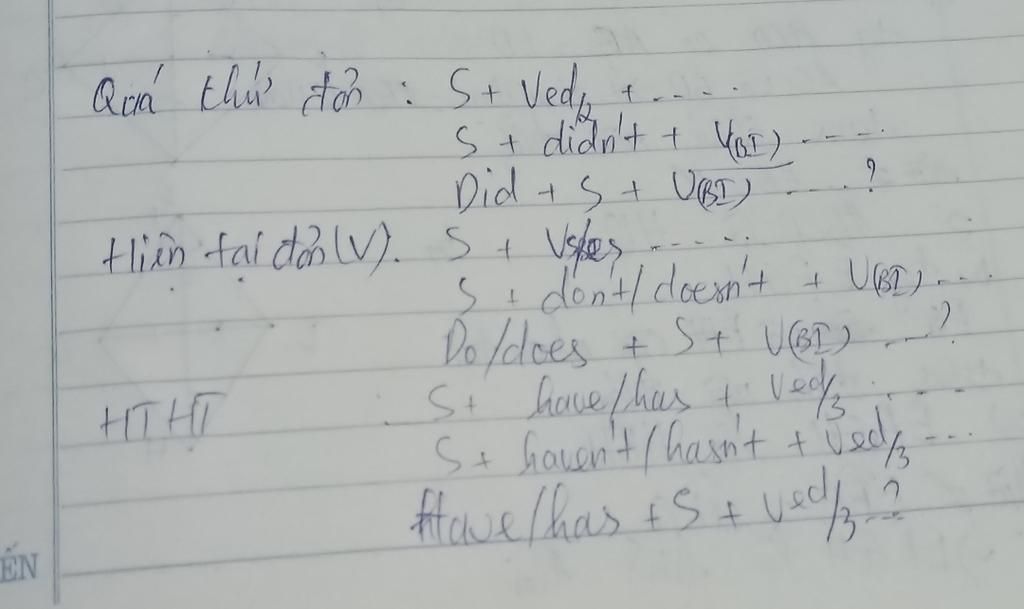 Quá thứ đơn : S + Ved/2 + ....
S + didn't + V(BI) ....
Did + S + V(BI) ....?
Hiện tại đơn (V). S + Vs/es .....
S + don't/doesn't + V(BI)...
Do/does + S + V(BI) ...?
HTHT S + have/has + Ved/3 ....
S + haven't/hasn't + Ved/3 ...
Have/has + S + Ved/3 ..?
ẾN